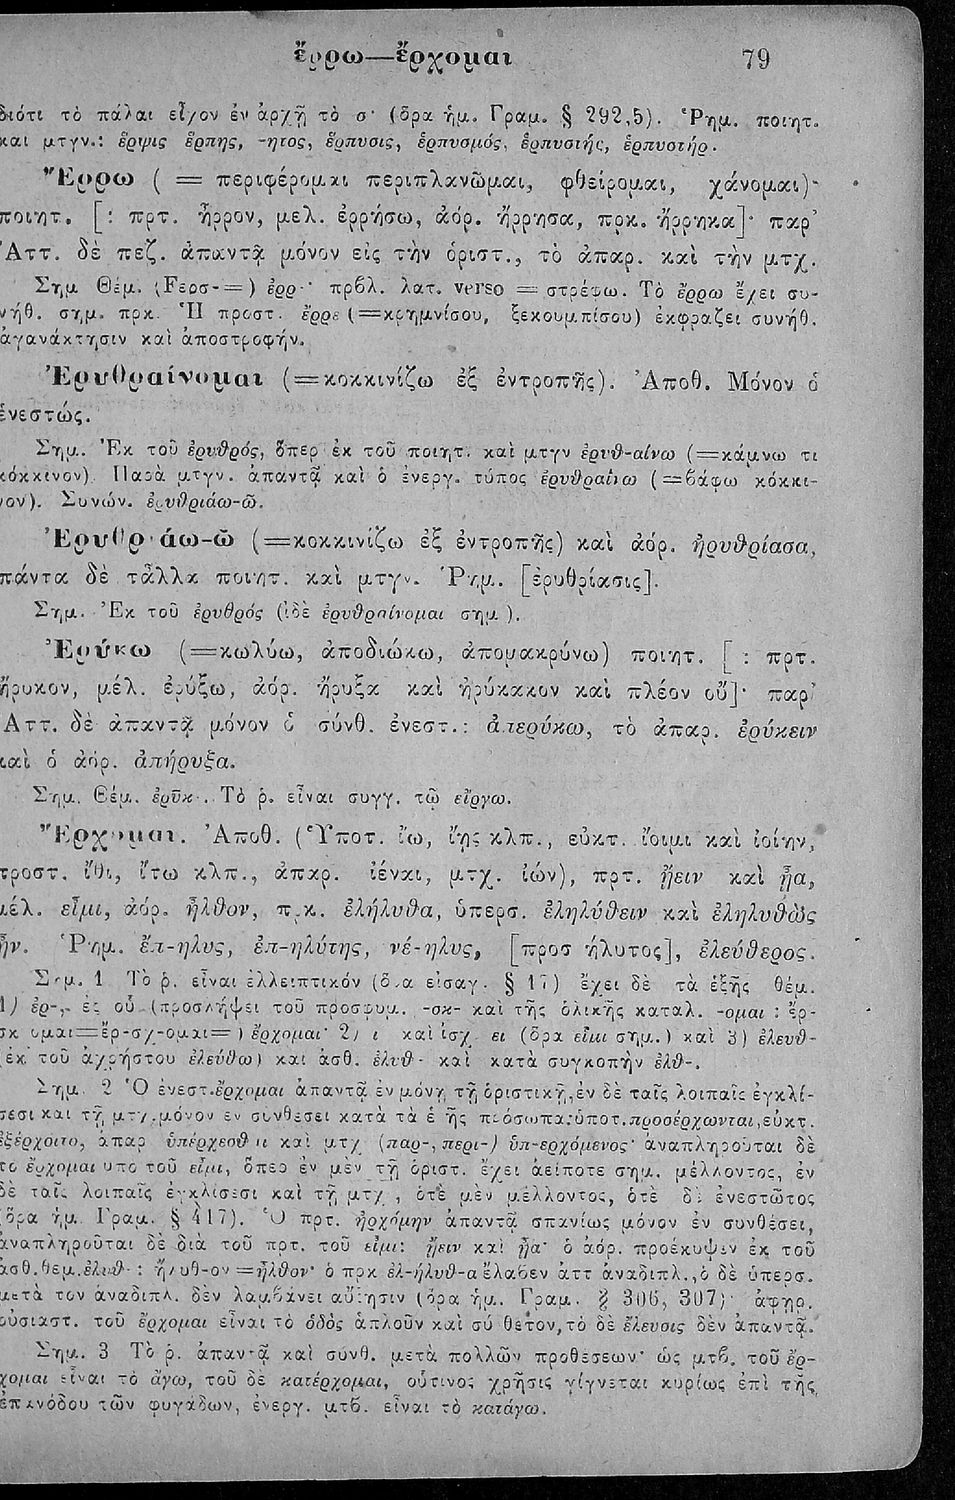 ἔρρω—ἔρχομαι 79
διότι τὸ πάλαι εἶχον ἐν ἀρχῇ τὸ σ· (ὅρα ἡμ. Γραμ. § 292,5). Ῥημ. ποιητ.
και μτγν.: ἕρψις ἕρπης, -ητος, ἕρπυσις, ἑρπυσμός, ἑρπυστής, ἑρπυστήρ.
Ἔρρω ( = περιφέρομαι περιπλανῶμαι, φθείρομαι, χάνομαι)·
ποιητ. [: πρτ. ἦρρον, μελ. ἐρρήσω, ἀόρ. ἤρρησα, πρκ. ἤρρηκα]· παρ’
Ἀττ. δὲ πεζ. ἀπαντᾷ μόνον εἰς τὴν ὁριστ., τὸ ἀπαρ. καὶ τὴν μτχ.
Σημ Θέμ. (Fερσ-=) ἐρρ-· πρβλ. λατ. verso = στρέφω. Τὸ ἔρρω ἔχει συ-
νήθ. σημ. πρκ. Ἡ προστ. ἔρρε (=κρημνίσου, ξεκουμπίσου) ἐκφραζει συνήθ.
ἀγανάκτησιν καὶ ἀποστροφήν.
Ἐρυθραίνομαι (=κοκκινίζω ἐξ ἐντροπῆς). Ἀποθ. Μόνον ὁ
ἐνεστώς.
Σημ. Ἐκ τοῦ ἐρυθρός, ὅπερ ἐκ τοῦ ποιητ. καὶ μτγν ἐρυθ-αίνω (=κάμνω τι
κόκκινον). Παρὰ μτγν. ἀπαντᾷ καὶ ὁ ἐνεργ. τύπος ἐρυθραίνω (=βάφω κόκκι-
νον). Συνών. ἐρυθριάω-ῶ.
Ἐρυθριάω-ῶ (=κοκκινίζω ἐξ ἐντροπῆς) καὶ ἀόρ. ἠρυθρίασα,
πάντα δὲ τἆλλα ποιητ. καὶ μτγν. Ῥημ. [ἐρυθρίασις].
Σημ. Ἐκ τοῦ ἐρυθρός (ἰδὲ ἐρυθραίνομαι σημ ).
Ἐρύκω (=κωλύω, ἀποδιώκω, ἀπομακρύνω) ποιητ. [ : πρτ.
ἤρυκον, μέλ. ἐρύξω, ἀόρ. ἤρυξα καὶ ἠρύκακον καὶ πλέον οὔ]· παρ’
Ἀττ. δὲ ἀπαντᾷ μόνον ὁ σύνθ. ἐνεστ.: ἀπερύκω, τὸ ἀπαρ. ἐρύκειν
καὶ ὁ ἀόρ. ἀπήρυξα.
Σημ. Θέμ. ἐρῦκ-. Τὸ ῥ. εἶναι συγγ. τῷ εἴργω.
Ἔρχομαι. Ἀποθ. (Ὑποτ. ἴω, ἴῃς κλπ., εὐκτ. ἴοιμι καὶ ἰοίην,
προστ. ἴθι, ἴτω κλπ., ἀπαρ. ἰέναι, μτχ. ἰών), πρτ. ᾔειν καὶ ᾖα,
μέλ. εἶμι, ἀόρ. ἦλθον, πρκ. ἐλήλυθα, ὑπερσ. ἐληλύθειν καὶ ἐληλυθὼς
ἦν. Ῥημ. ἔπ-ηλυς, ἐπ-ηλύτης, νέ-ηλυς, [προσήλυτος], ἐλεύθερος.
Σημ. 1 Τὸ ῥ. εἶναι ἐλλειπτικόν (ὅρα εἰσαγ. § 17) ἔχει δὲ τὰ ἑξῆς θέμ.
1) ἐρ-, ἐξ οὗ (προσλήψει τοῦ προσφυμ. -σκ- καὶ τῆς ὁλικῆς καταλ. -ομαι : ἔρ-
σκ ομαι=ἔρ-σχ-ομαι= ) ἔρχομαι· 2) ι καὶ ἰσχ. ει (ὅρα εἶμι σημ.) καὶ 3) ἐλευθ-
(ἐκ τοῦ ἀχρήστου ἐλεύθω) και ἀσθ. ἐλυθ- καὶ κατὰ συγκοπὴν ἐλθ-.
Σημ. 2 Ὁ ἐνεστ. ἔρχομαι ἀπαντᾷ ἐν μόνῃ τῇ ὁριστικῇ, ἐν δὲ ταῖς λοιπαῖς ἐγκλί-
σεσι και τῇ μτχ. μόνον ἐν συνθέσει κατὰ τὰ ἑξῆς πρόσωπα: ὑποτ. προσέρχωνται, εὐκτ.
ἐξέρχοιτο, ἀπαρ ὑπέρχεσθαι καὶ μτχ (παρ-, περι-) ὑπ-ερχόμενος· ἀναπληροῦται δὲ
τὸ ἔρχομαι ὑπο τοῦ εἶμι, ὅπερ ἐν μὲν τῇ ὁριστ. ἔχει ἀείποτε σημ. μέλλοντος, ἐν
δὲ ταῖς λοιπαῖς ἐγκλίσεσι καὶ τῇ μτχ., ὁτὲ μὲν μέλλοντος, ὁτὲ δὲ ἐνεστῶτος
(ὅρα ἡμ. Γραμ. § 417). Ὁ πρτ. ἠρχόμην ἀπαντᾷ σπανίως μόνον ἐν συνθέσει,
ἀναπληροῦται δὲ διὰ τοῦ πρτ. τοῦ εἶμι: ᾔειν καὶ ᾖα· ὁ ἀόρ. προέκυψεν ἐκ τοῦ
ἀσθ. θεμ. ἐλυθ- : ἤλυθ-ον =ἦλθον· ὁ πρκ ἐλ-ήλυθ-α ἔλαβεν ἀττ ἀναδιπλ., ὁ δὲ ὑπερσ.
μετὰ τον ἀναδιπλ. δὲν λαμβάνει αὔξησιν (ὅρα ἡμ. Γραμ. § 306, 307)· ἀφηρ.
οὐσιαστ. τοῦ ἔρχομαι εἶναι τὸ ὁδὸς ἁπλοῦν καὶ σύνθετον, τὸ δὲ ἔλευσις δὲν ἀπαντᾷ.
Σημ. 3 Τὸ ῥ. ἀπαντᾷ καὶ σύνθ. μετὰ πολλῶν προθέσεων· ὡς μτβ. τοῦ ἔρ-
χομαι εἶναι τὸ ἄγω, τοῦ δὲ κατέρχομαι, οὗτινος χρῆσις γίγνεται κυρίως ἐπὶ τῆς
ἐπανόδου τῶν φυγάδων, ἐνεργ. μτβ. εἶναι τὸ κατάγω.